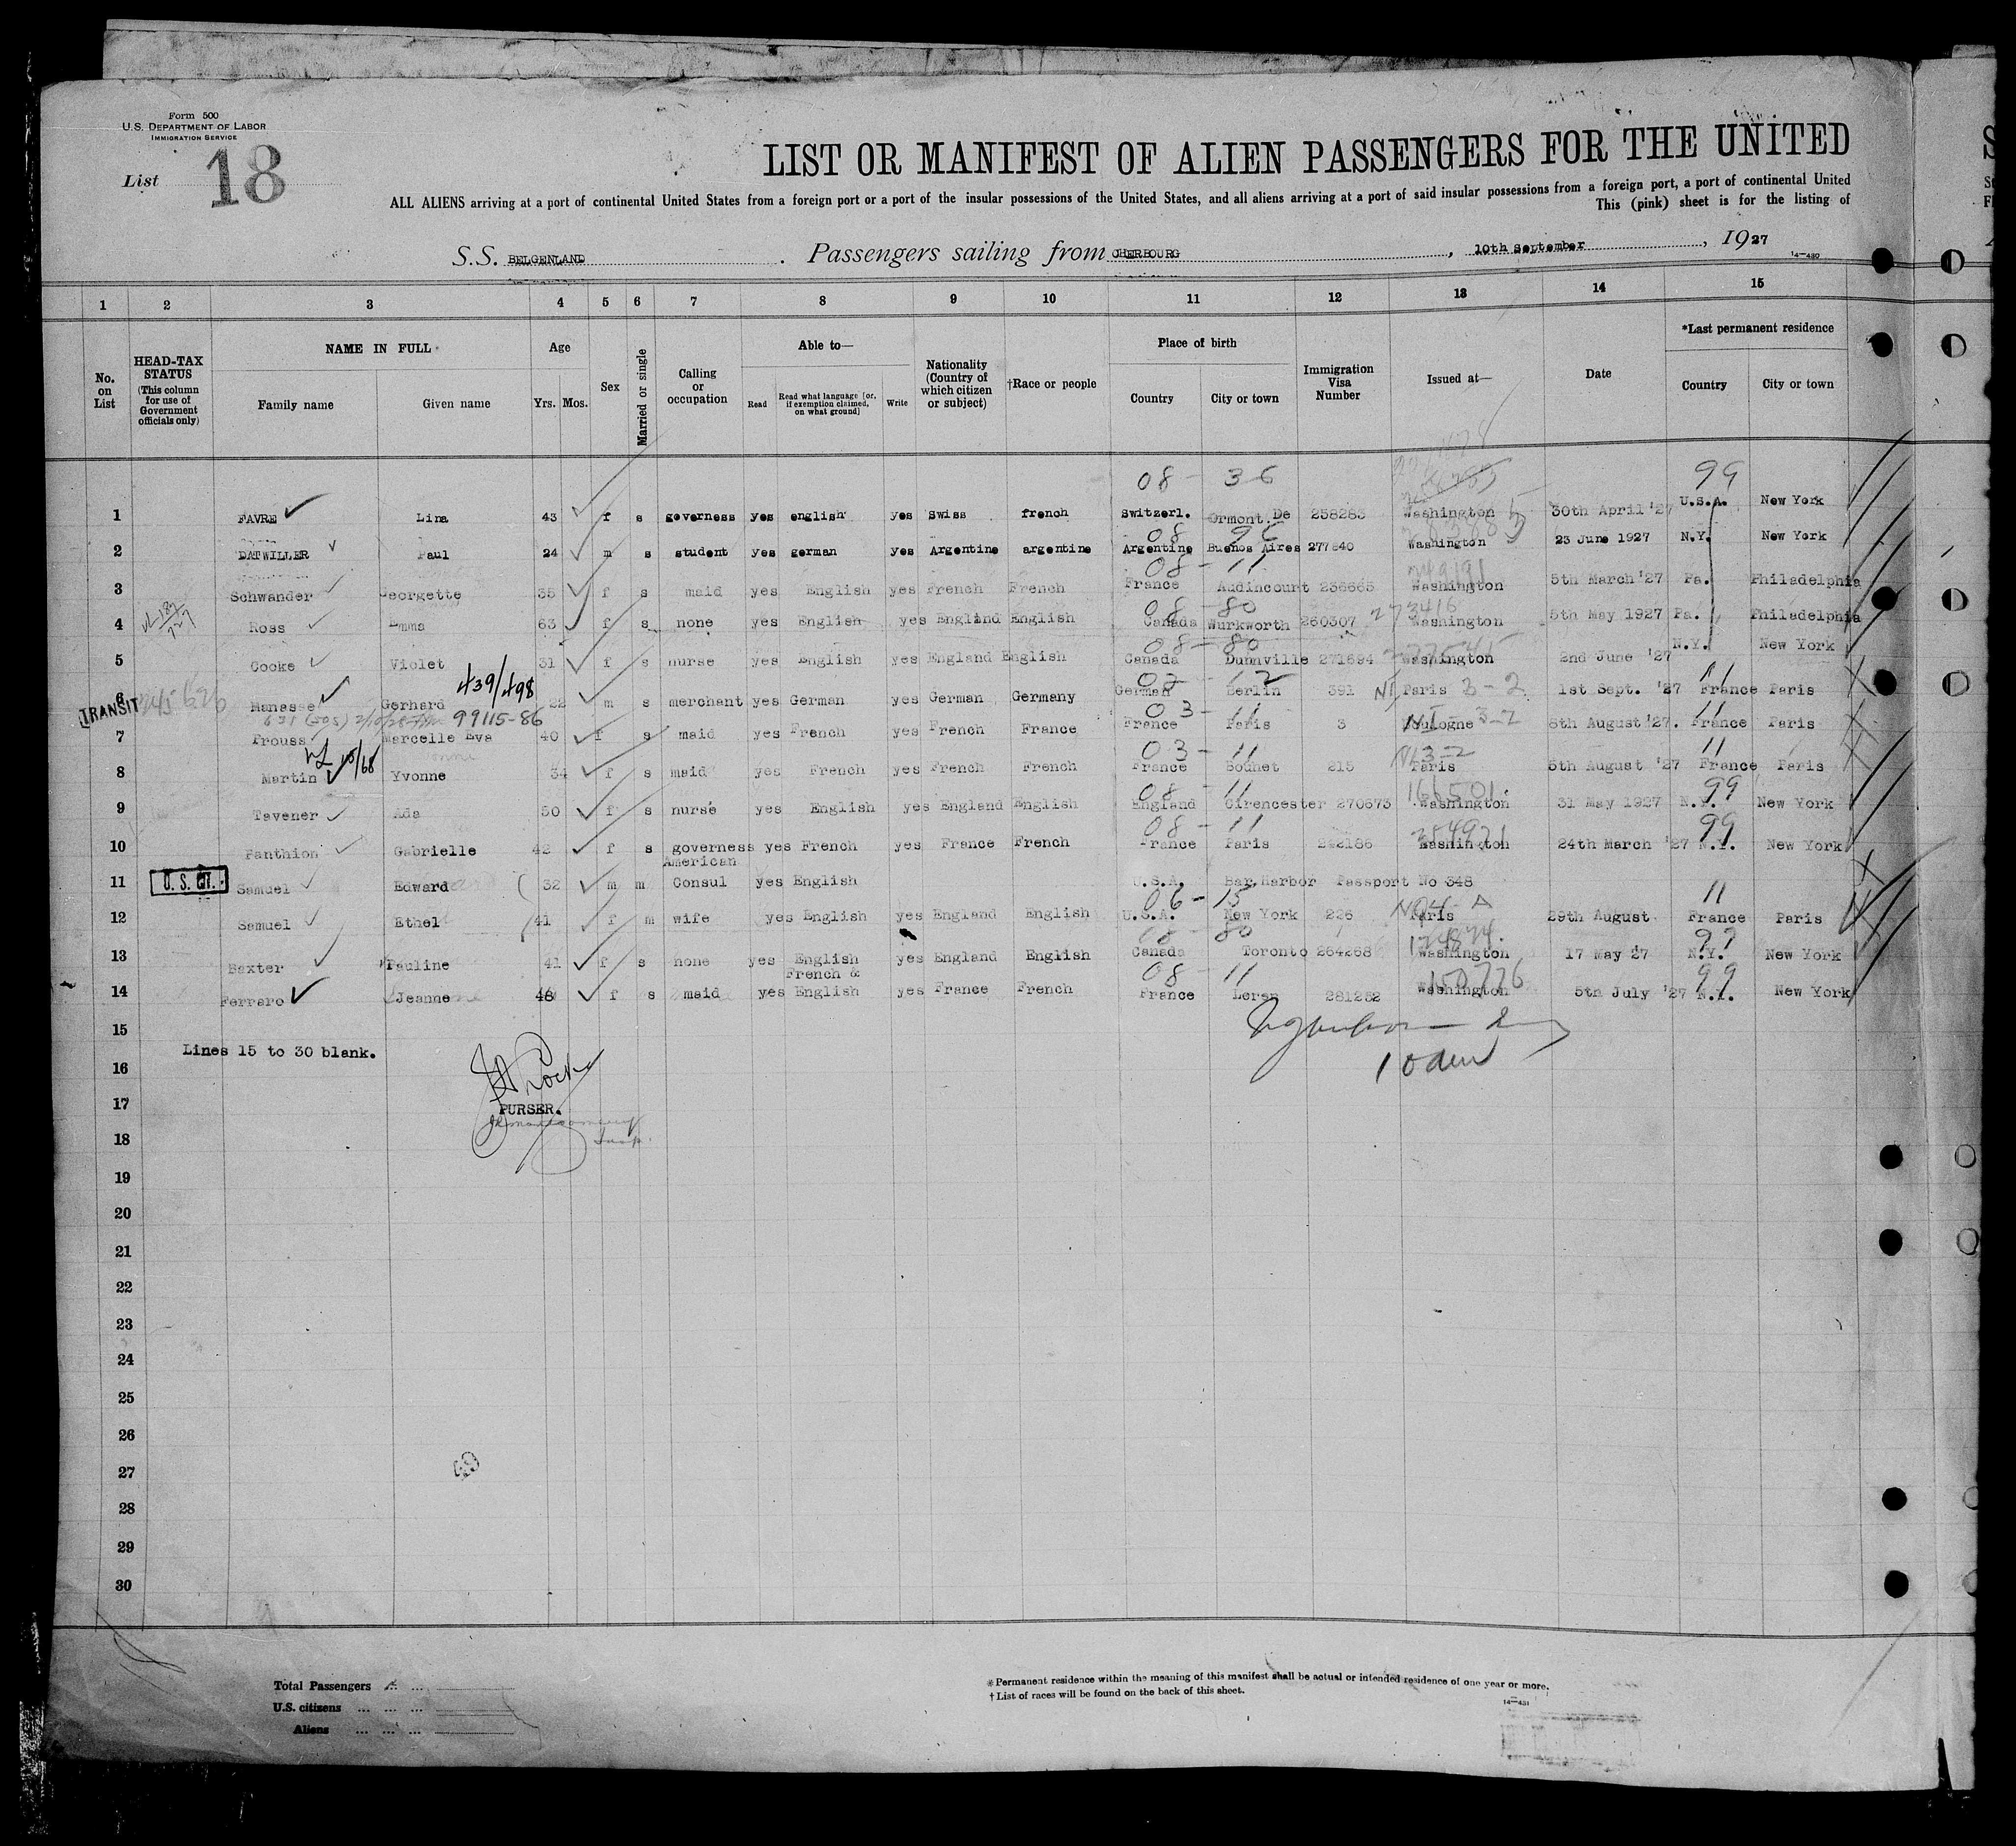 Form 500
U.S. DEPARTMENT OF LABOR
IMMIGRATION SERVICE
List 18
LIST OR MANIFEST OF ALIEN PASSENGERS FOR THE UNITED
ALL ALIENS arriving at a port of continental United States from a foreign port or a port of the insular possessions of the United States, and all aliens arriving at a port of said insular possessions from a foreign port, a port of continental United
This (pink) sheet is for the listing of
S.S. BELGENLAND. Passengers sailing from CHERBOURG, 10th September, 1927
14—430
1 2 3 4 5 6 7 8 9 10 11 12 13 14 15
No. on List
HEAD-TAX STATUS (This column for use of Government officials only)
NAME IN FULL
Family name Given name
Age
Yrs. Mos.
Sex
Married or single
Calling or occupation
Able to—
Read Read what language [or, if exemption claimed, on what ground] Write
Nationality (Country of which citizen or subject)
†Race or people
Place of birth
Country City or town
Immigration Visa Number
Issued at—
Date
*Last permanent residence
Country City or town
08 - 36 99
1 FAVRE Lina 43 f s governess yes english yes Swiss french Switzerl. Ormont De 258283 Washington 30th April '27 U.S.A. New York
08 96
2 DATWILLER Paul 24 m s student yes german yes Argentine argentine Argentine Buenos Aires 277840 Washington 23 June 1927 N.Y. New York
08 - 11 249191
3 Schwander Georgette 35 f s maid yes English yes French French France Audincourt 236665 Washington 5th March '27 Pa. Philadelphia
08 - 80 273416
4 Ross Emma 63 f s none yes English yes England English Canada Wurkworth 260307 Washington 5th May 1927 Pa. Philadelphia
08 - 80
5 Cooke Violet 31 f s nurse yes English yes England English Canada Dunnville 271694 Washington 2nd June '27 N.Y. New York
439/498 02 - 12 11
TRANSIT 6 Manasse Gerhard 22 m s merchant yes German yes German Germany German Berlin 391 Paris 3-2 1st Sept. '27 France Paris
99115-86 03 - 11 11
7 Frouss Marcelle Eva 40 f s maid yes French yes French France France Paris 3 3-2 6th August '27. France Paris
03 - 11 11
8 Martin Yvonne 34 f s maid yes French yes French French France 215 Paris 5th August '27 France Paris
08 - 11 99
9 Tavener Ada 50 f s nurse yes English yes England English England Cirencester 270673 Washington 31 May 1927 N.Y. New York
08 - 11 99
10 Panthion Gabrielle 42 f s governess yes French yes France French France Paris 242186 Washington 24th March '27 N.Y. New York
American
11 U. S. CIT. Samuel Edward 32 m m Consul yes English U.S.A. Bar Harbor Passport No 348
06 - 15 11
12 Samuel Ethel 41 f m wife yes English yes England English U.S.A. New York 226 Paris 29th August France Paris
80 99
13 Baxter Pauline 41 f s none yes English yes England English Canada Toronto 264268 Washington 17 May 27 N.Y. New York
08 - 11 150776 99
14 Ferraro Jeanne 48 f s maid yes French & English yes France French France 281252 Washington 5th July '27 N.Y. New York
15
Lines 15 to 30 blank.
16
17
PURSER.
18
19
20
21
22
23
24
25
26
27
28
29
30
Total Passengers
U.S. citizens
Aliens
*Permanent residence within the meaning of this manifest shall be actual or intended residence of one year or more.
†List of races will be found on the back of this sheet.
14—431